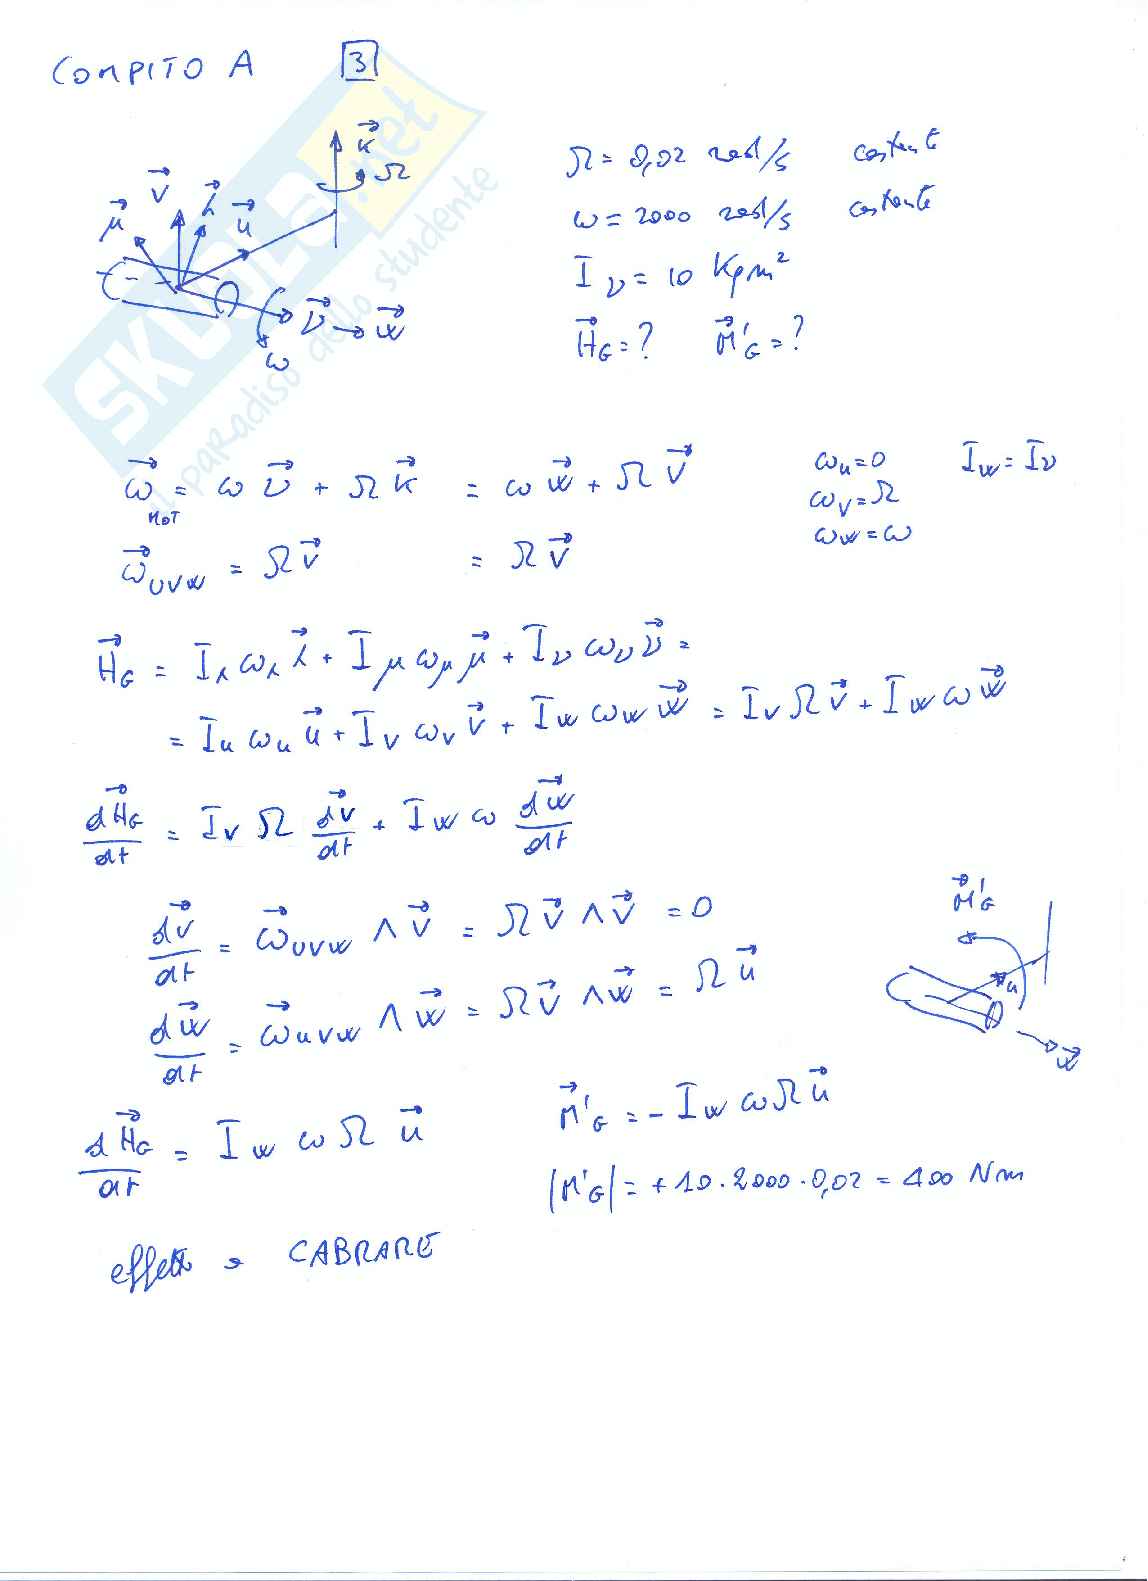 COMPITO A 3
SKUOLA.net
il paradiso dello studente
k⃗ Ω
v⃗ λ⃗ u⃗
μ⃗
ν⃗ → w⃗
ω
Ω = 0,02 rad/s costante
ω = 2000 rad/s costante
I ν = 10 Kg m²
H⃗G = ? M⃗'G = ?
ω⃗MOT = ω ν⃗ + Ω k⃗ = ω w⃗ + Ω v⃗
ωu = 0 Iw = Iν
ωv = Ω
ωw = ω
ω⃗uvw = Ω v⃗ = Ω v⃗
H⃗G = Iλ ωλ λ⃗ + Iμ ωμ μ⃗ + Iν ων ν⃗ =
= Iu ωu u⃗ + Iv ωv v⃗ + Iw ωw w⃗ = Iv Ω v⃗ + Iw ω w⃗
dH⃗G/dt = Iv Ω dv⃗/dt + Iw ω dw⃗/dt
dv⃗/dt = ω⃗uvw ∧ v⃗ = Ω v⃗ ∧ v⃗ = 0
dw⃗/dt = ω⃗uvw ∧ w⃗ = Ω v⃗ ∧ w⃗ = Ω u⃗
M⃗'G
u
w⃗
dH⃗G/dt = Iw ω Ω u⃗
M⃗'G = - Iw ω Ω u⃗
|M'G| = + 10 · 2000 · 0,02 = 400 Nm
effetto → CABRARE